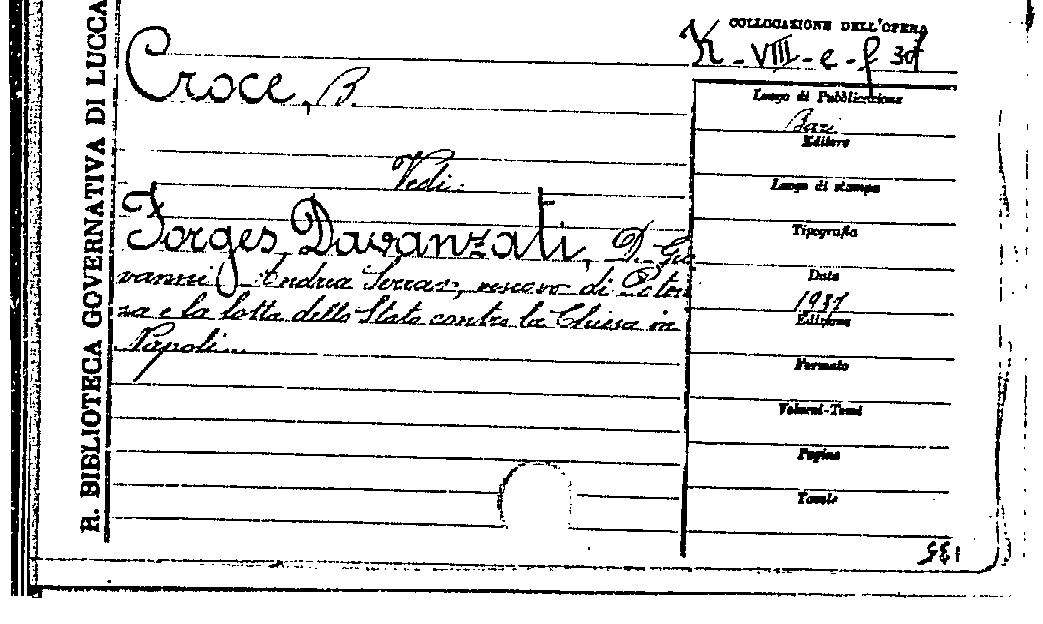 R. BIBLIOTECA GOVERNATIVA DI LUCCA
COLLOCAZIONE DELL'OPERA
K - VIII - e - f 30
Croce, B.
Vedi:
Forges Davanzati, D. Gio
vanni Andrea Serrao, vescovo di Poten
za e la lotta dello Stato contro la Chiesa in
Napoli
Luogo di Pubblicazione
Bari
Editore
Luogo di stampa
Tipografia
Data
1937
Edizione
Formato
Volumi-Tomi
Pagine
Tavole